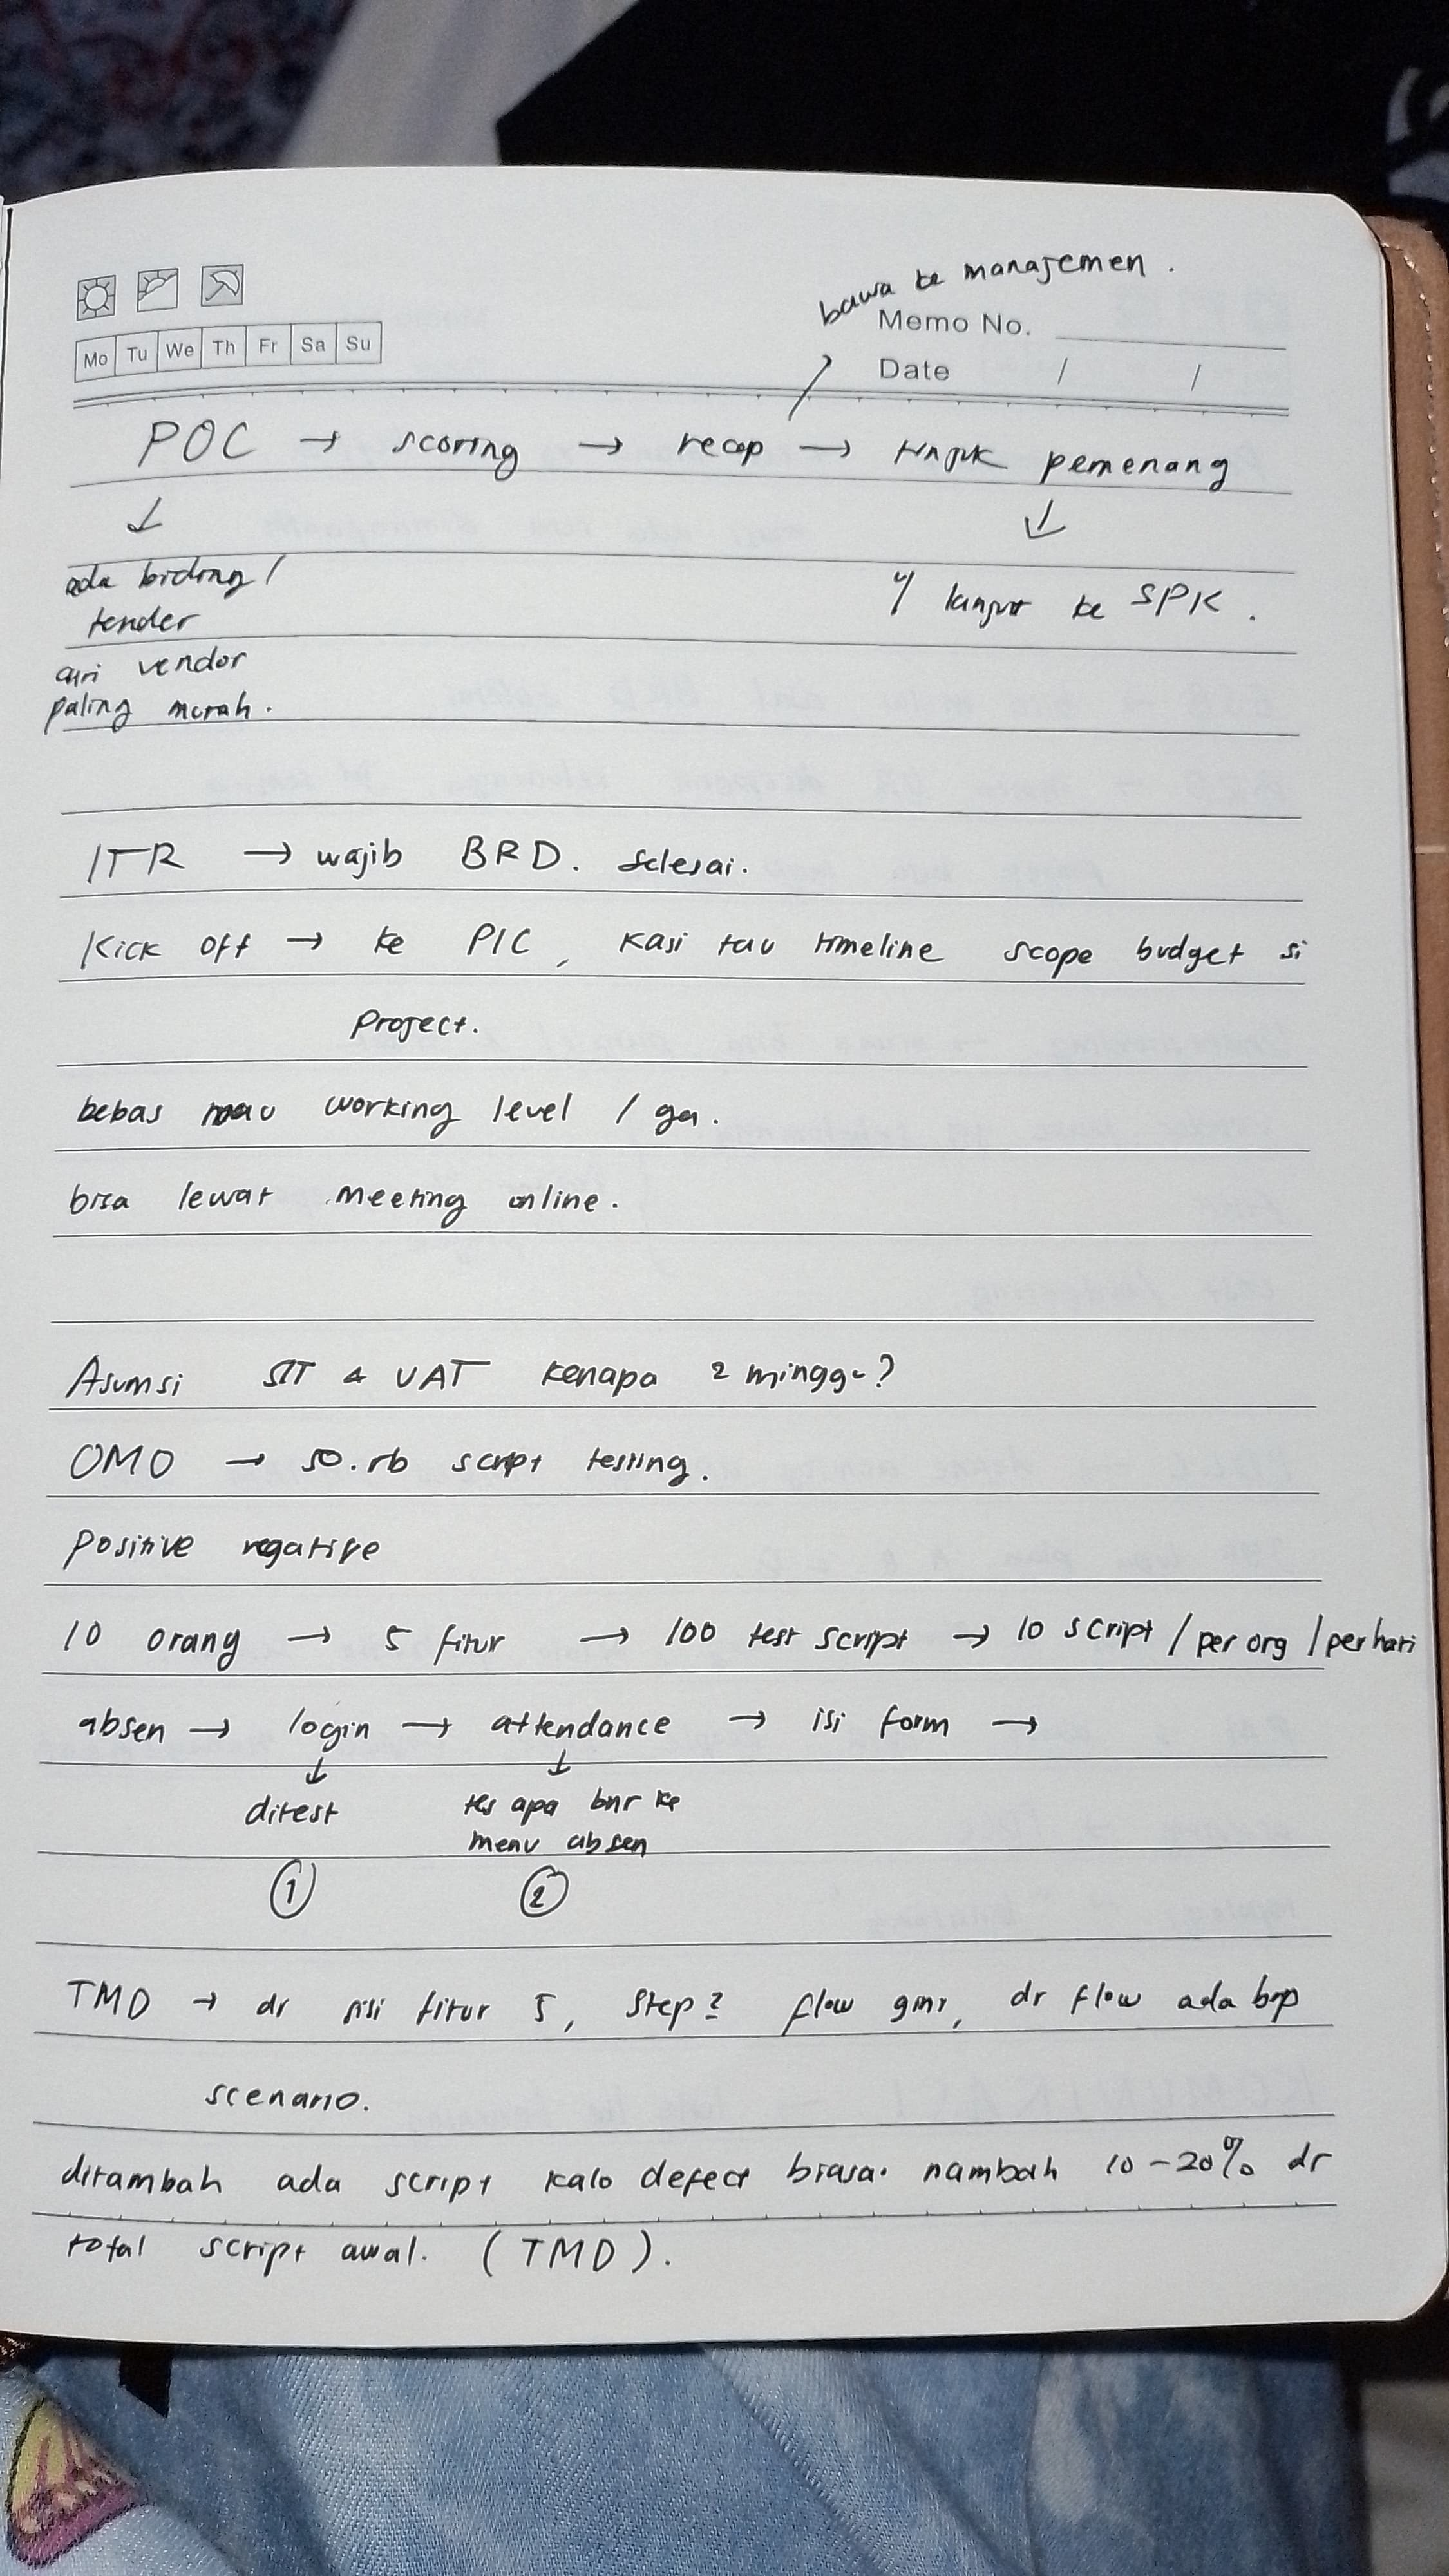 bawa ke manajemen.
Memo No.
Mo Tu We Th Fr Sa Su
Date / /
POC → scoring → recap → tunjuk pemenang
↓ ↓
ada biding /
tender
u/ lanjut ke SPK.
cari vendor
paling murah.
ITR → wajib BRD. selesai.
Kick off → ke PIC, kasi tau timeline scope budget si
project.
bebas mau working level / ga.
bisa lewat meeting online.
Asumsi SIT & UAT kenapa 2 minggu?
OMO → 50.rb script testing.
positive negative
10 orang → 5 fitur → 100 test script → 10 script / per org / per hari
absen → login → attendance → isi form →
↓ ↓
ditest
tes apa bnr ke
menu absen
1 2
TMD → dr sisi fitur 5, step2 flow gmn, dr flow ada brp
scenario.
ditambah ada script kalo defect biasa. nambah 10-20% dr
total script awal. (TMD).